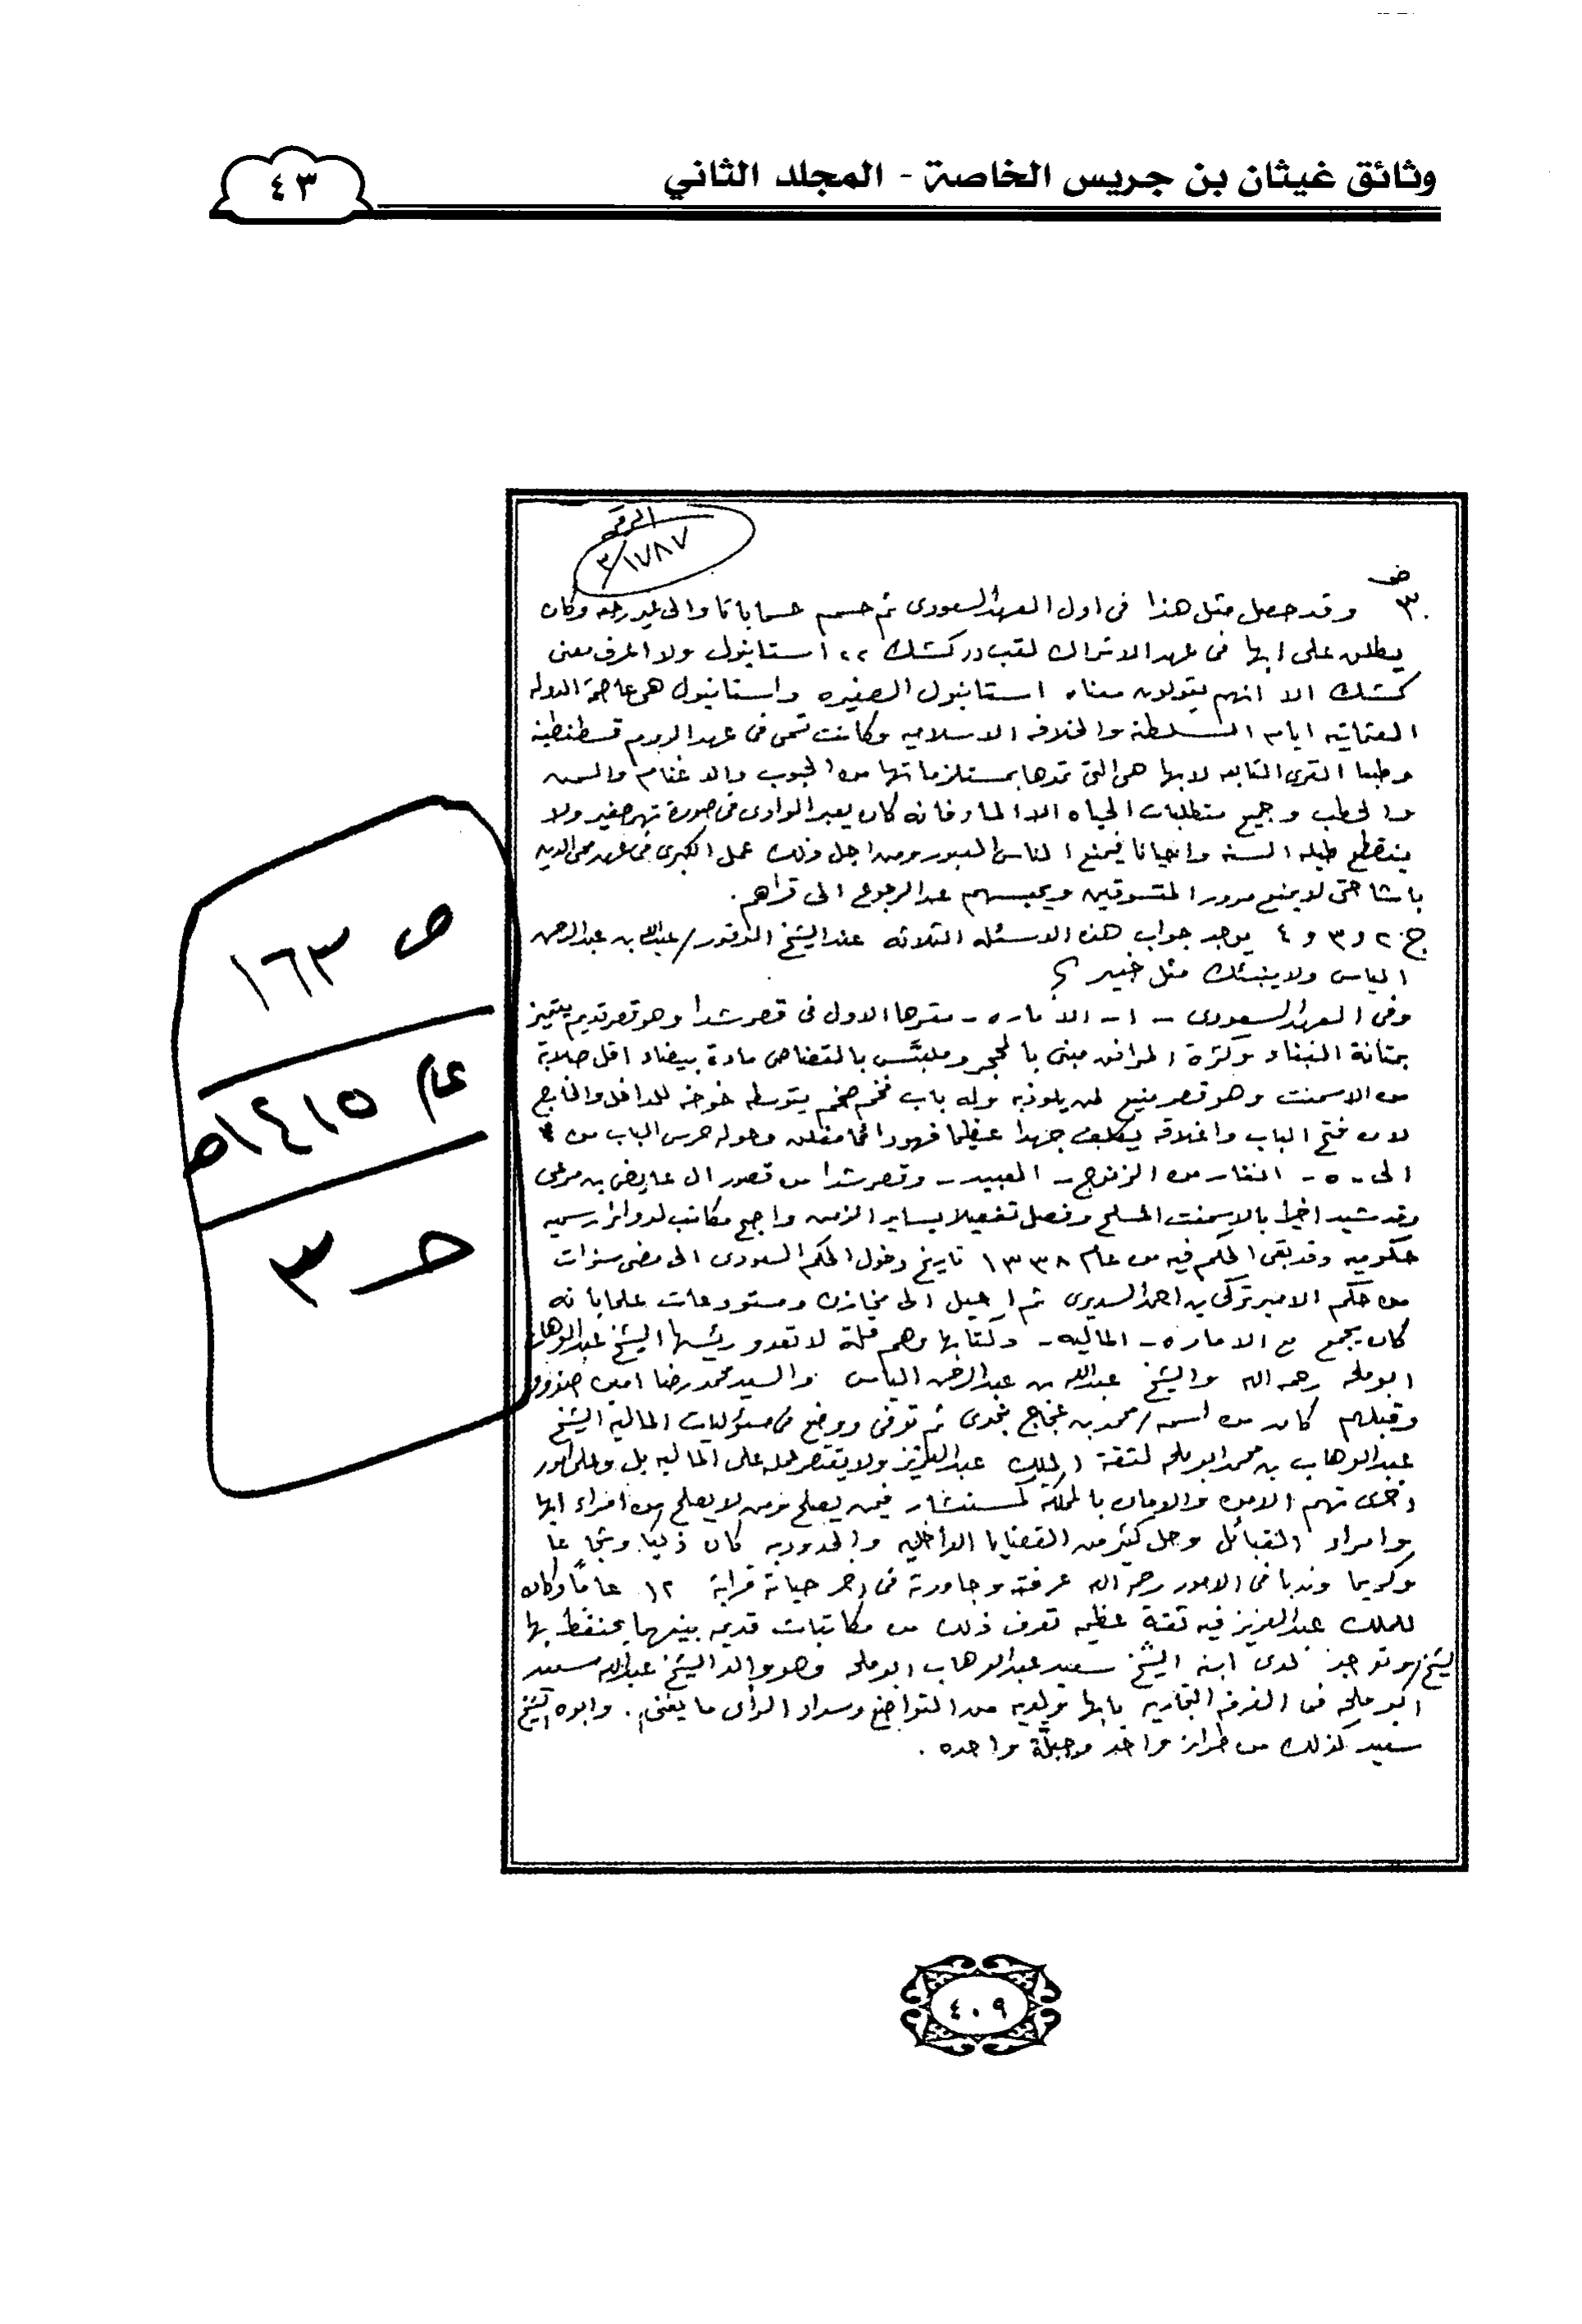 وثائق غيثان بن جريس الخاصة - المجلد الثاني
٤٣
الرقم
٣/١٧٨٧
ص
٣٠ وقد حصل مثل هذا فى اول العهد السعودى ثم حسم حسابا تا والى غير رجعه وكان
يطلق على ابها فى عهد الاتراك لقب در كشك ،، استانبول ولا اعرف معنى
كشك الا انهم يقولون معناه استانبول الصغيره واستانبول هى عاصمة الدوله
العثمانيه ايام السلطنة والخلافه الاسلاميه وكانت تسمى فى عهد الروم قسطنطينة
وطبعا القرى التابعه لابها هى التى تمدها بمستلزماتها من الحبوب والاغنام والسمن
والحطب وجميع متطلبات الحياه الا الماء فانه كان يعبر الوادى فى صورة نهر صغير ولا
ينقطع طيله السنة واحيانا فيمنع الناس العبور ومن اجل ذلك عمل الكبرى فى عهد محى الدين
باشا حتى لا يمنع مرور المتسوقين ويحبسهم عن الرجوع الى قراهم.
ج ٢ و ٣ و ٤ يوجد جواب هذه الاسئله الثلاثه عند الشيخ الدكتور / عبدالله بن عبدالرحمن
الياس ولا ينبئك مثل خبير
وفى العهد السعودى - ١ - الاماره - مقرها الاول فى قصر شدا وهو قصر قديم يتميز
بمتانة البناء وكثرة المرافق مبنى بالحجر وملبَّس بالقضاض مادة بيضاء اقل صلابة
من الاسمنت وهو قصر منيع لمن يلوذ به وله باب فخم ضخم يتوسطه خوخه للداخل والخارج
لان فتح الباب واغلاقه يكلف جهدا عظيما فهو دائما مقفل وحوله حرس الباب من ٤
الى - ٥ - انفار من الزنوج - العبيد - وقصر شدا من قصور ال عايض بن مرعى
وقد شيد اخيرا بالاسمنت المسلح وفصل تفصيلا يساير الزمن واصبح مكاتب لدوائر رسميه
حكوميه وقد بقى الحكم فيه من عام ١٣٣٨ تاريخ دخول الحكم السعودى الى مضى سنوات
من حكم الامير تركى بن احمد السديرى ثم احيل الى مخازن ومستودعات علما بانه
كان يجمع مع الاماره - الماليه - وكتابها وهم قلة لا تعدو رئيسها الشيخ عبدالوهاب
ابو ملحه رحمه الله والشيخ عبدالله بن عبدالرحمن الياس والسيد محمد رضا امين صندوق
وقبلهم كان من اسمه / محمد بن عجاج نجدى ثم توفى ووضع فى مسؤليات المالية الشيخ
عبدالوهاب بن محمد ابو ملحه لثقة الملك عبدالعزيز ولا يقتصر عمله على الماليه بل وعلى امور
اخرى تهم الامن والامان بالمملكة كمستشار فيمن يصلح ومن لا يصلح من امراء ابها
وامراء القبائل وحل كثير من القضايا الداخليه والحدوديه كان ذكيا وشجاعا
وكريما وندبا فى الامور رحمه الله عرفته وجاورته فى اخر حياته قرابة ١٢ عاماً وكان
للملك عبدالعزيز فيه ثقة عظيمه تعرف ذلك من مكاتبات قديمه بينهما يحتفظ بها
وتوجد لدى ابنه الشيخ سعيد عبدالوهاب ابو ملحه وهو والد الشيخ عبدالله سعيد
ابو ملحه فى الغرفه التجاريه بابها ولديه من التواضع وسداد الرأى ما يغنى. وابوه الشيخ
سعيد كذلك من طراز واحد وجبلَّة واحده.
ص ١٦٣
عام ١٤١٥هـ
حـ ٣
٤٠٩